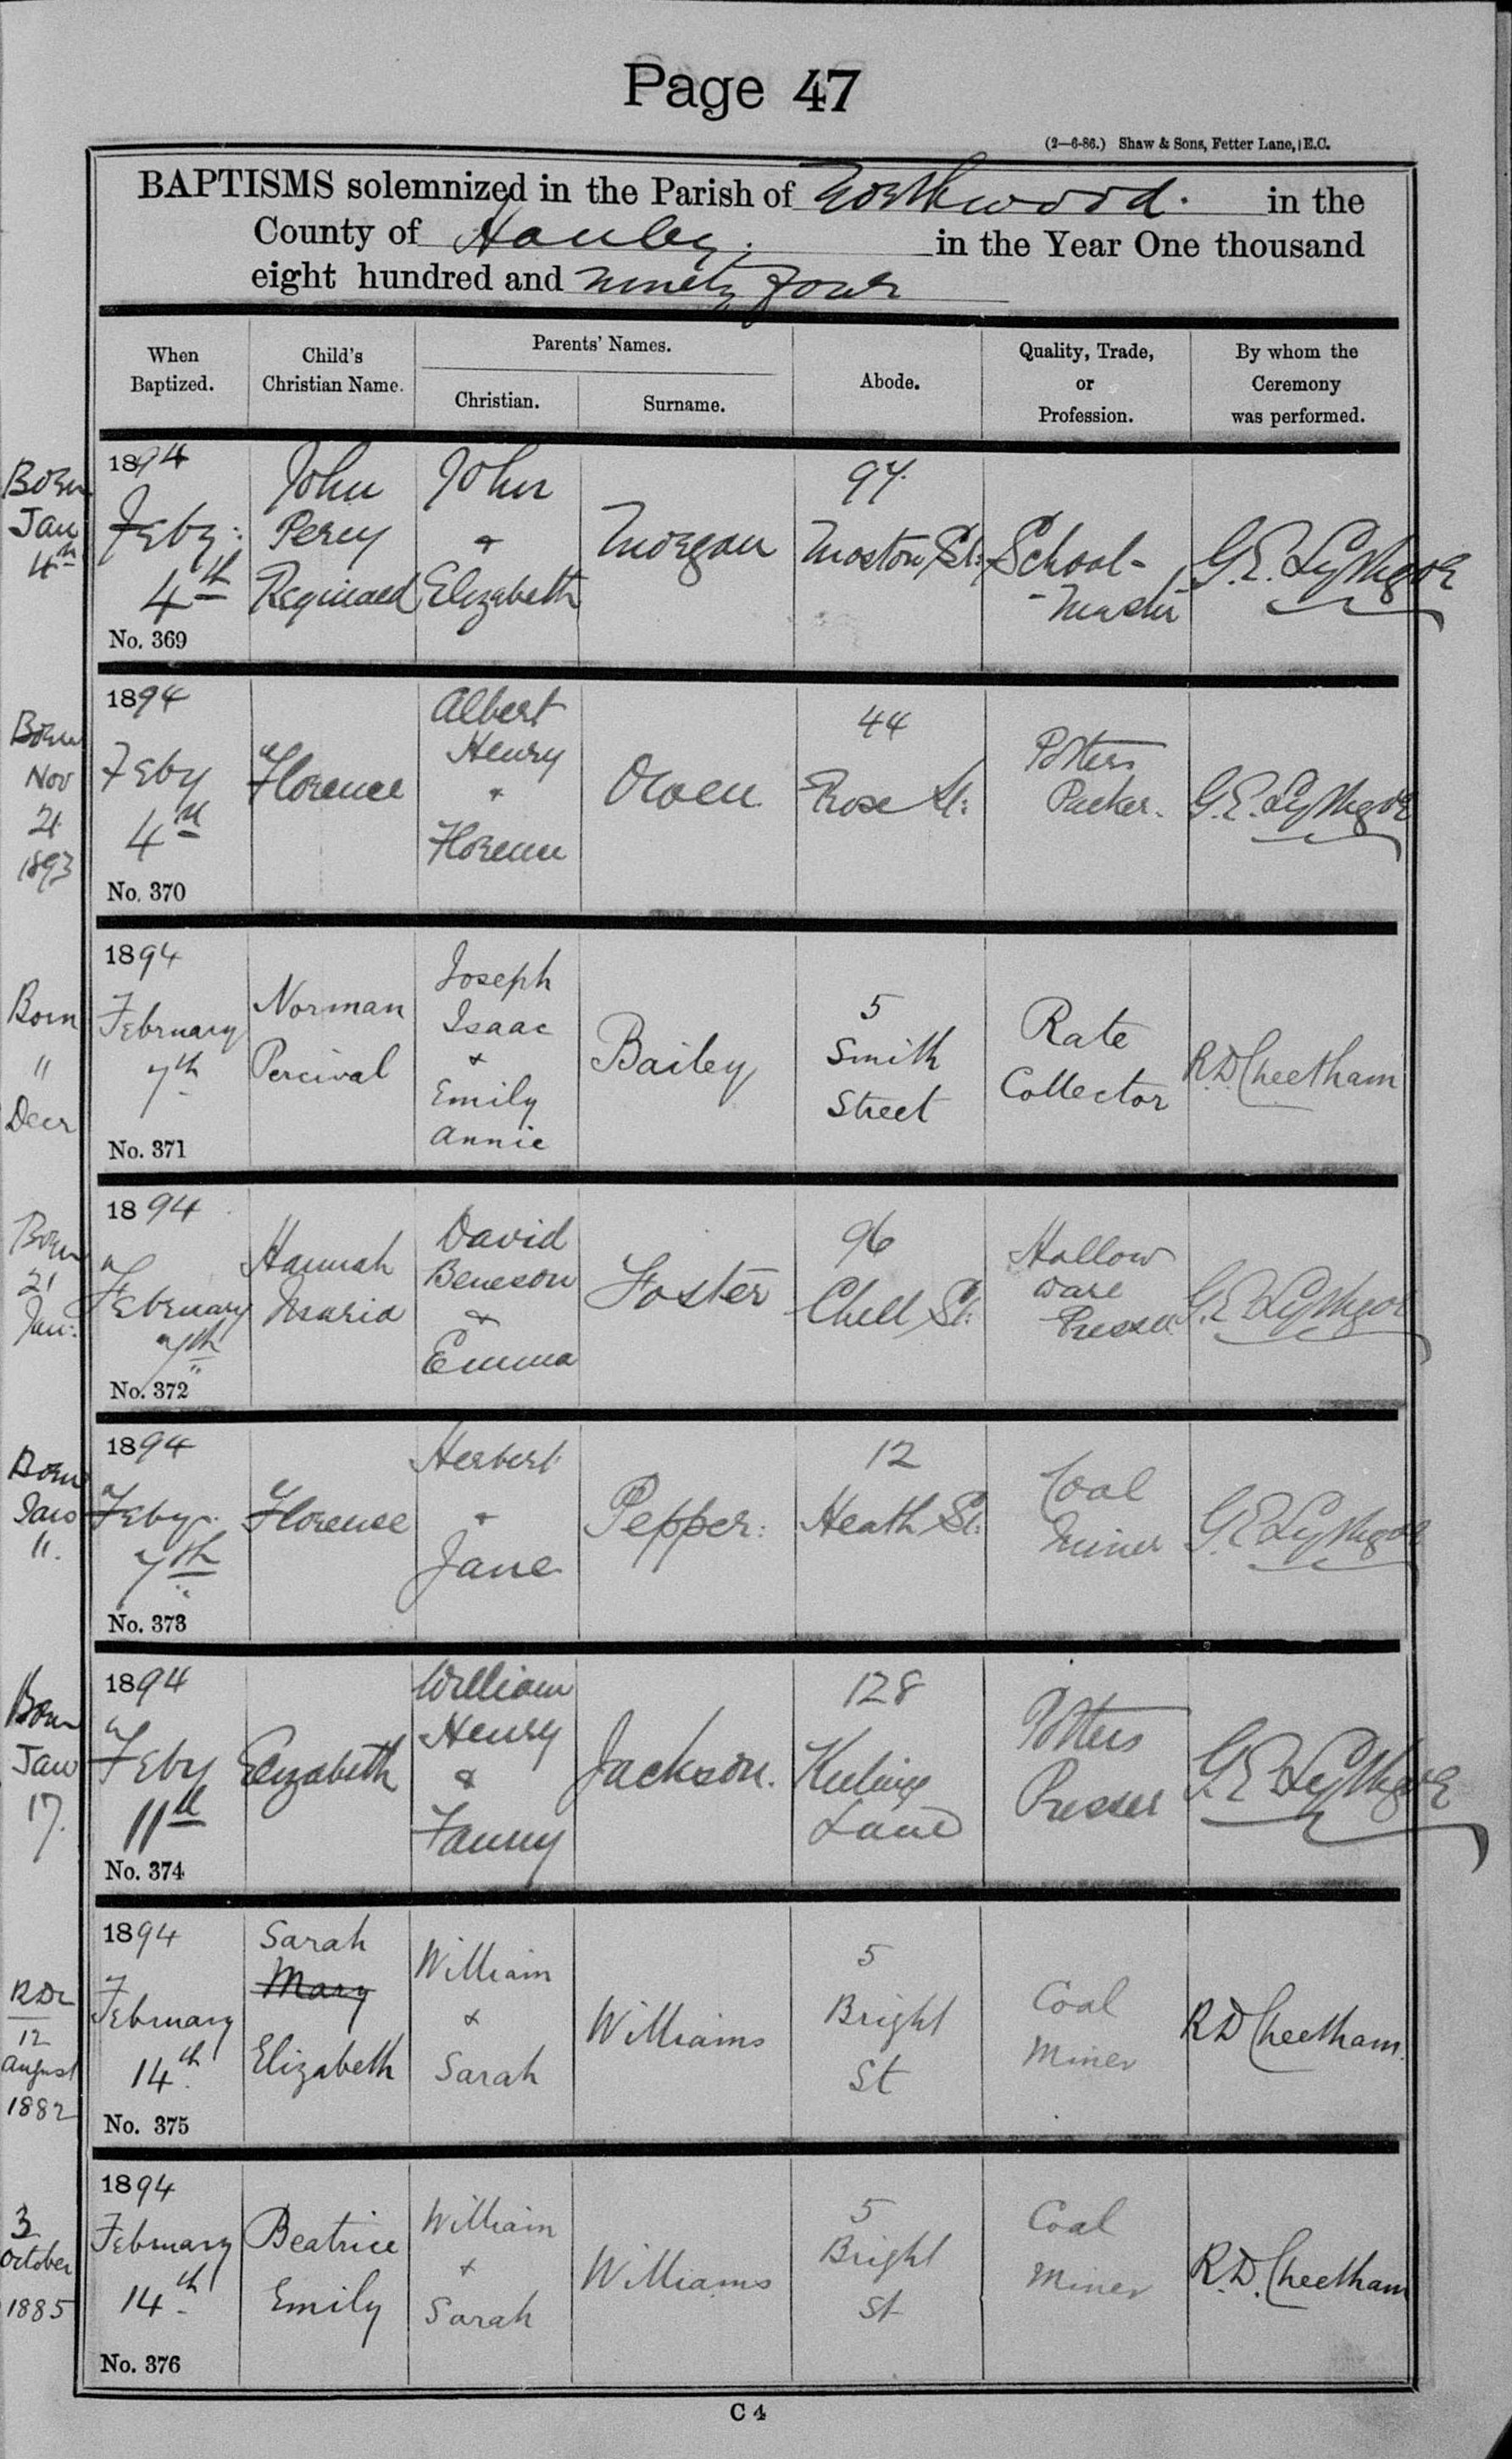 Page 47
(2—6-86.) Shaw & Sons, Fetter Lane, E.C.
BAPTISMS solemnized in the Parish of Northwood. in the
County of Hanley. in the Year One thousand
eight hundred and ninety four
When
Baptized.
Child's
Christian Name.
Parents' Names.
Christian.
Surname.
Abode.
Quality, Trade,
or
Profession.
By whom the
Ceremony
was performed.
Born
Jan
4th
1894
Feby:
4th
No. 369
John
Percy
Reginald
John
&
Elizabeth
Morgan
97
Moston St:
School-
-Master
G.E. Lythgoe
Born
Nov
21
1893
1894
Feby
4th
No. 370
Florence
Albert
Henry
&
Florence
Owen
44
Rose St:
Potters
Packer.
G.E. Lythgoe
Born
"
Decr
1894
February
7th
No. 371
Norman
Percival
Joseph
Isaac
&
Emily
Annie
Bailey
5
Smith
Street
Rate
Collector
R.D. Cheetham
Born
21
Jan:
1894
February
7th
No. 372
Hannah
Maria
David
Beneson
&
Emma
Foster
96
Chell St:
Hollow
ware
Presser
G.E. Lythgoe
Born
Jan
11.
1894
Feby.
7th
No. 373
Florence
Herbert
&
Jane
Pepper:
12
Heath St:
Coal
Miner
G.E. Lythgoe
Born
Jan
17.
1894
Feby
11th
No. 374
Elizabeth
William
Henry
&
Fanny
Jackson.
128
Keelings
Lane
Potters
Presser
G.E. Lythgoe
RDC
12
August
1882
1894
February
14th
No. 375
Sarah
Mary
Elizabeth
William
&
Sarah
Williams
5
Bright
St
Coal
Miner
R.D. Cheetham.
3
October
1885
1894
February
14th
No. 376
Beatrice
Emily
William
&
Sarah
Williams
5
Bright
St
Coal
Miner
R.D. Cheetham
C 4